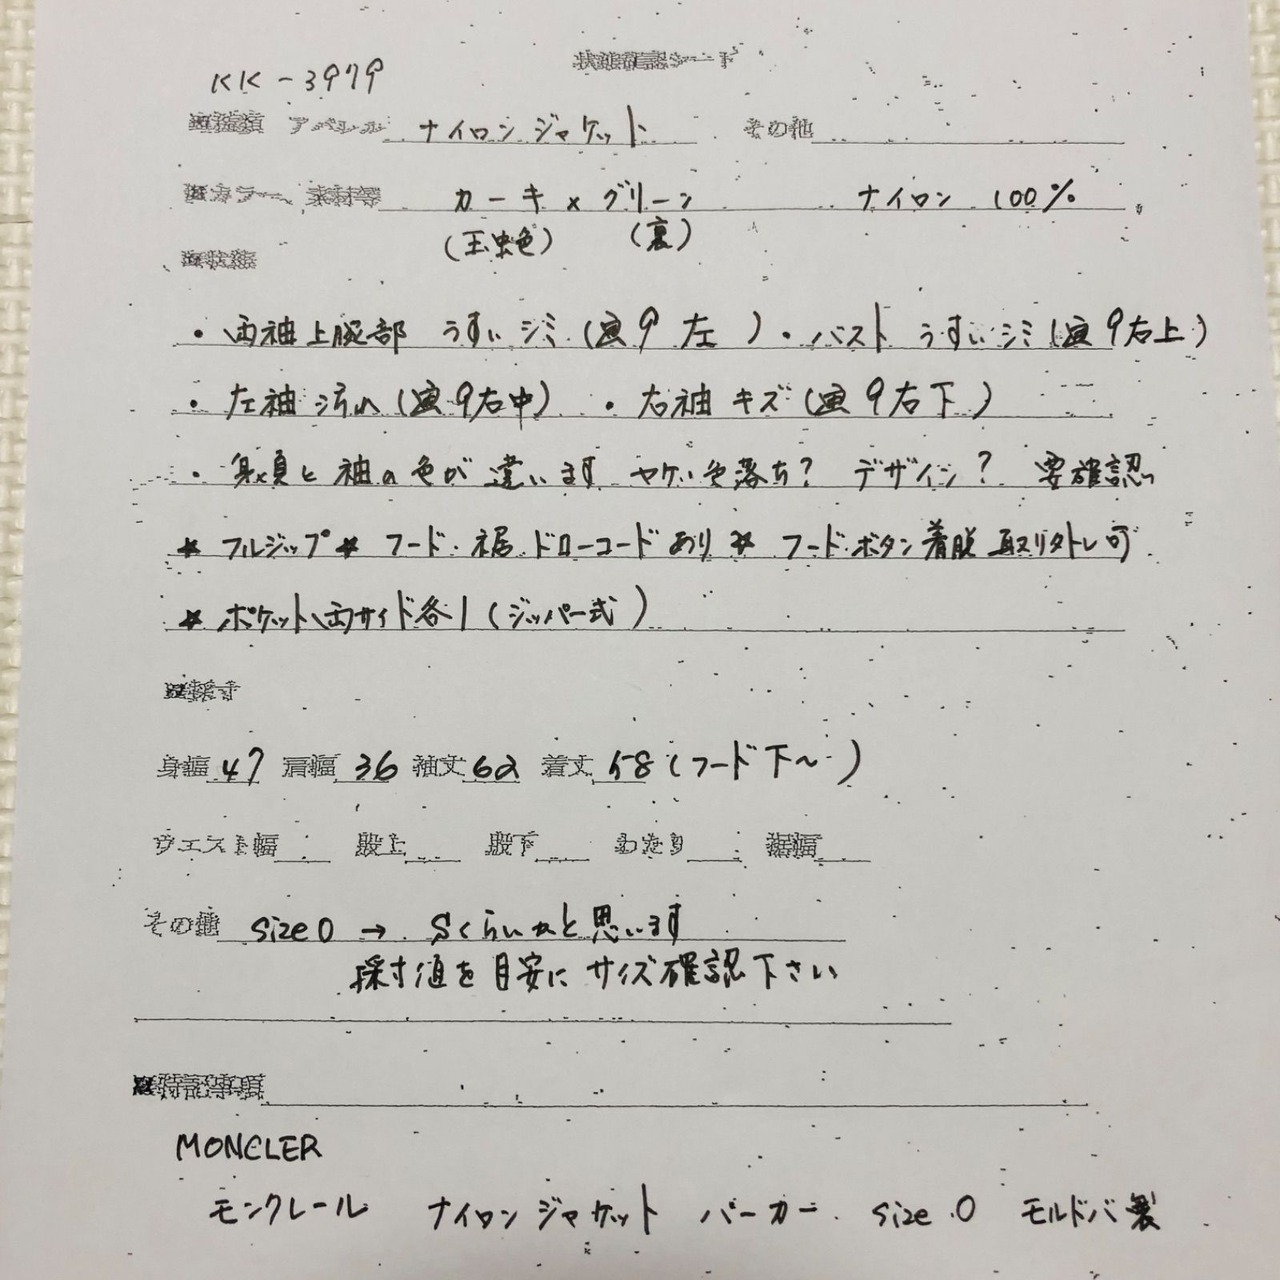 状態確認シート
KK-3979
■種類 アパレル ナイロンジャケット その他
■カラー、素材等 カーキ×グリーン ナイロン 100%
(玉虫色) (裏)
■状態
・両袖上腕部 うすいシミ(画9 左 )・バスト うすいシミ(画9右上)
・左袖 汚れ(画9右中) ・右袖 キズ(画9右下 )
・身頃と袖の色が違います ヤケ、色落ち? デザイン? 要確認
★フルジップ★フード・裾 ドローコードあり★フードボタン着脱 取り外し可
★ポケット両サイド各1(ジッパー式 )
■採寸
身幅 47 肩幅 36 袖丈 62 着丈 58(フード下〜 )
ウエスト幅 股上 股下 わたり 裾幅
その他 size 0 → Sくらいかと思います
採寸値を目安にサイズ確認下さい
■特記事項
MONCLER
モンクレール ナイロンジャケット パーカー size 0 モルドバ製